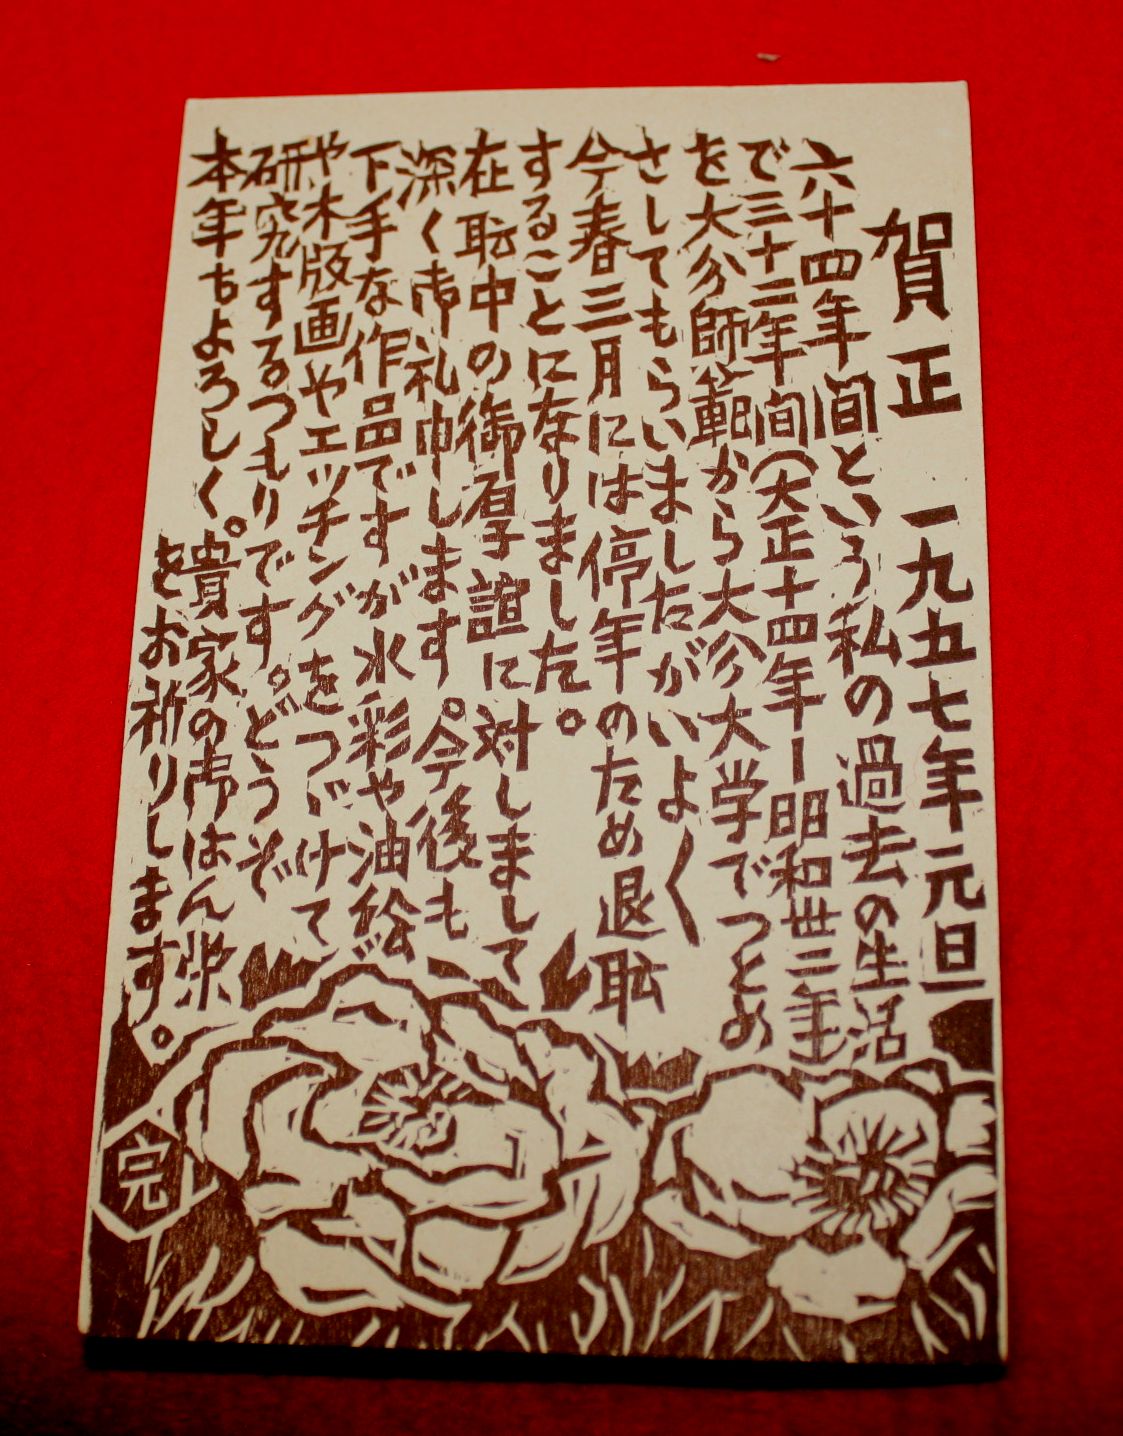 賀正 一九五七年元旦
六十四年間という私の過去の生活
で三十二年間(大正十四年ー昭和卅二年
を大分師範から大分大学でつとめ
さしてもらいましたがいよく
今春三月には停年のため退耻
することになりました。
在耻中の御厚誼に対しまして
深く御礼申します。今後も
下手な作品ですが水彩や油絵
や木版画やエッチングをつづけて
研究するつもりです。どうぞ
本年もよろしく。貴家の御はん栄
をお祈りします。
完